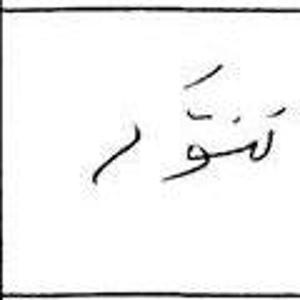 تنوَّر